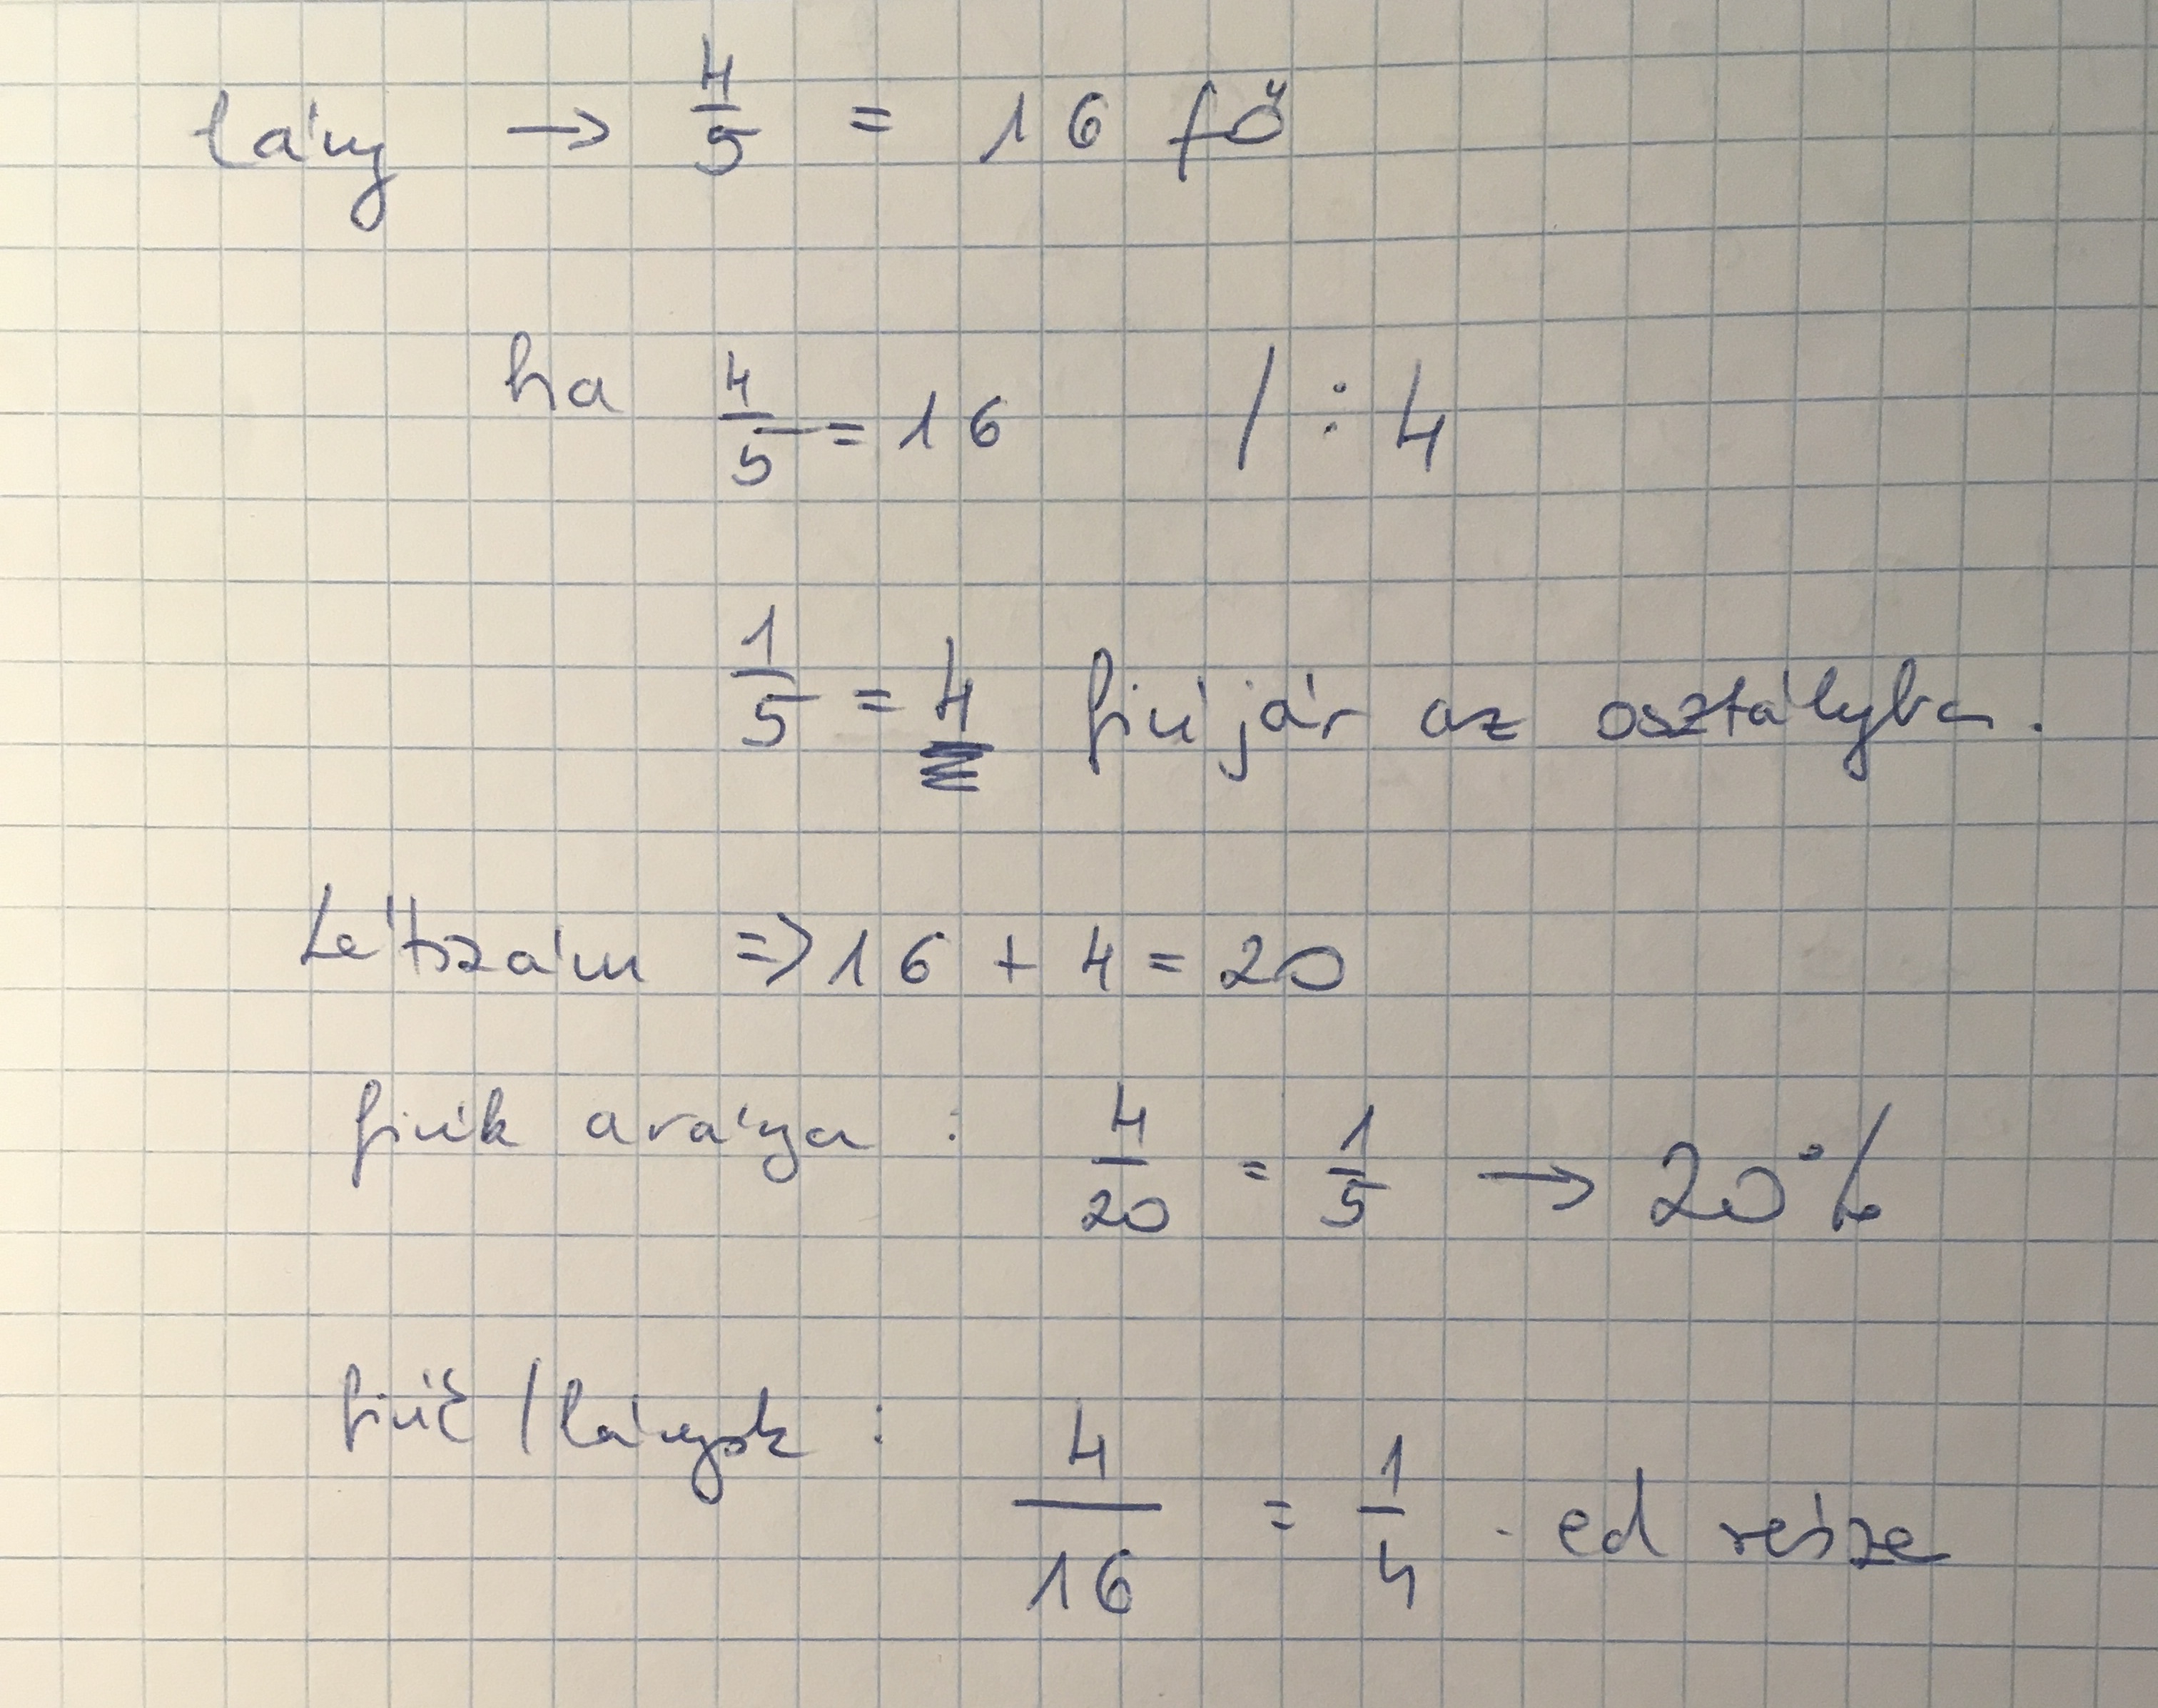 lány → 4/5 = 16 fő
ha 4/5 = 16 / : 4
1/5 = 4 fiú jár az osztályba.
Létszám => 16 + 4 = 20
fiúk aránya : 4/20 = 1/5 → 20%
fiúk / lányok : 4/16 = 1/4 - ed része